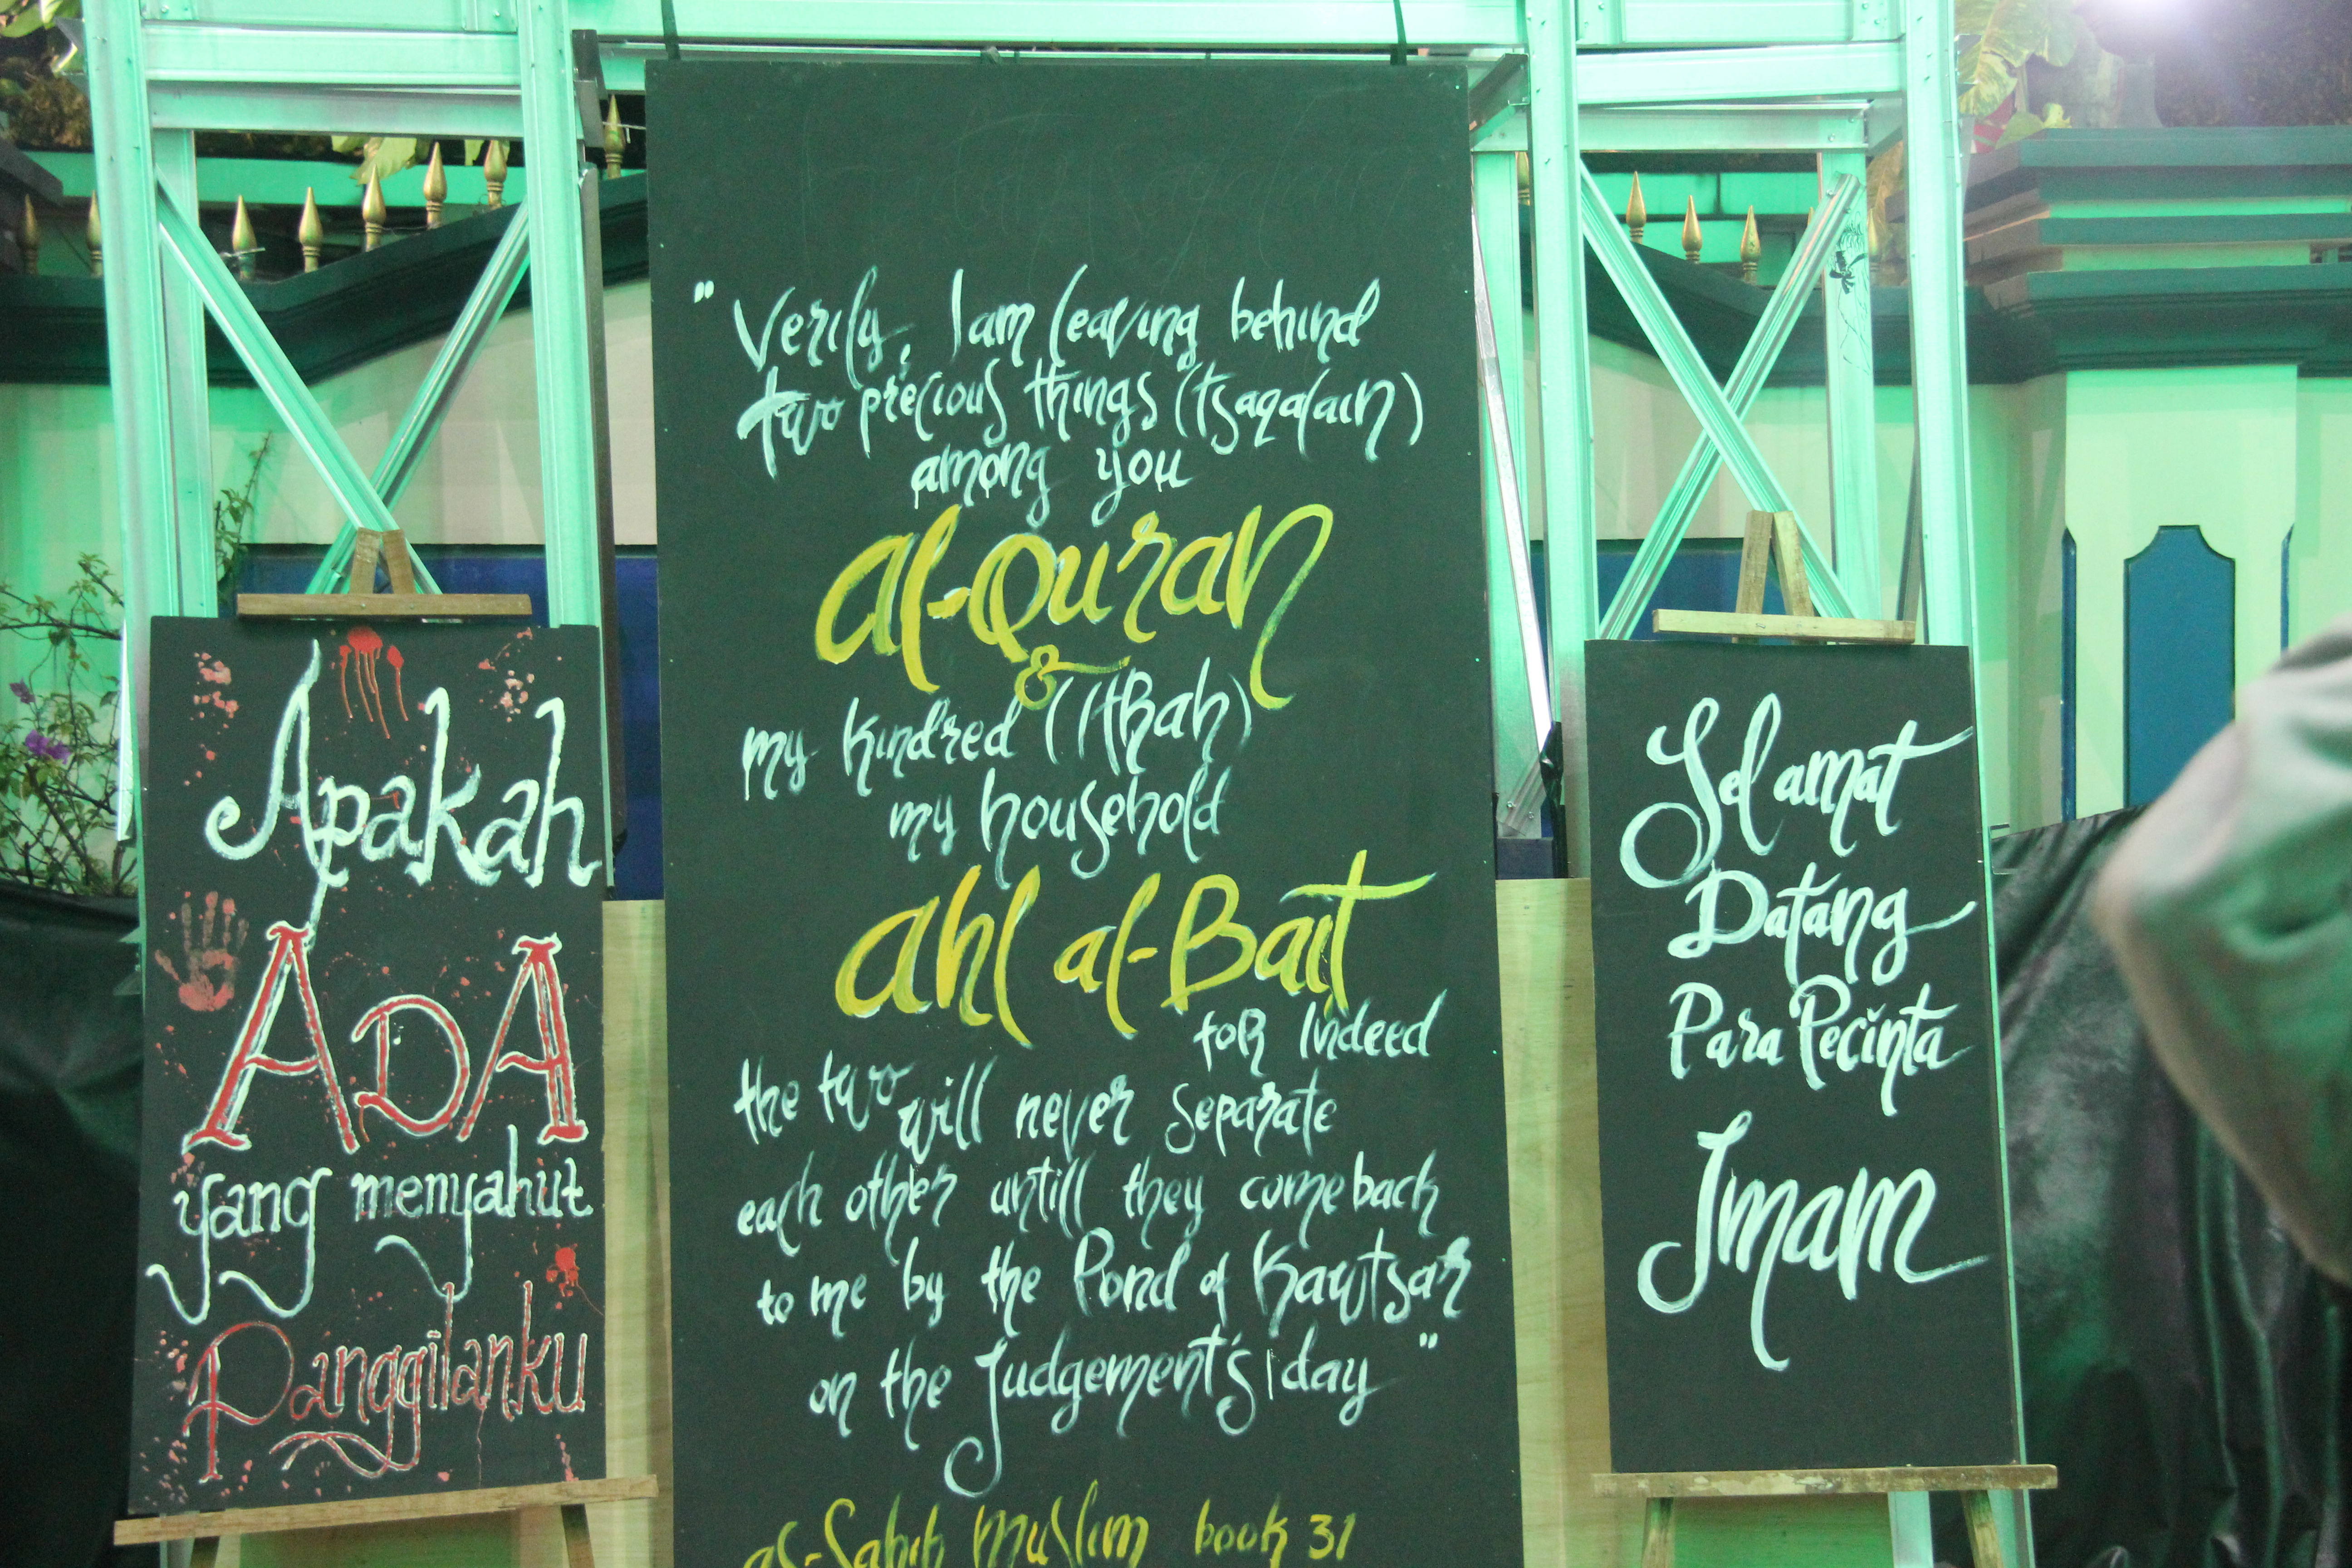 Apakah
ADA
yang menyahut
Panggilanku
" Verily, I am leaving behind
two precious things (tsaqalain)
among you
al-Quran
&
my kindred (Itrah)
my household
ahl al-Bait
for Indeed
the two will never separate
each other untill they come back
to me by the Pond of Kawtsar
on the Judgement's day "
as-Sahih Muslim book 31
Selamat
Datang
Para Pecinta
Imam